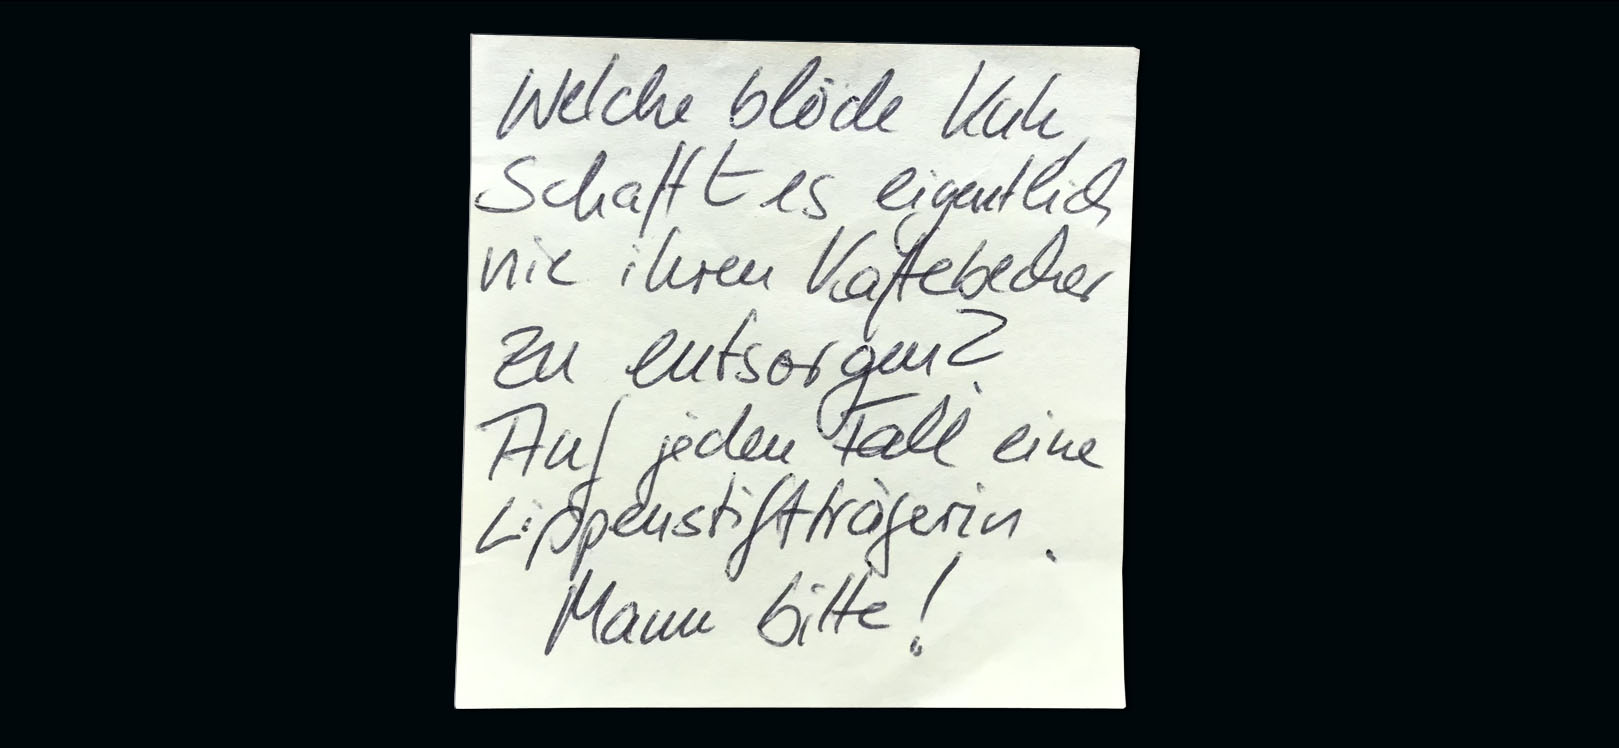 Welche blöde Kuh
schafft es eigentlich
nie ihren Kaffebecher
zu entsorgen?
Auf jeden Fall eine
Lippenstiftträgerin.
Mann bitte!